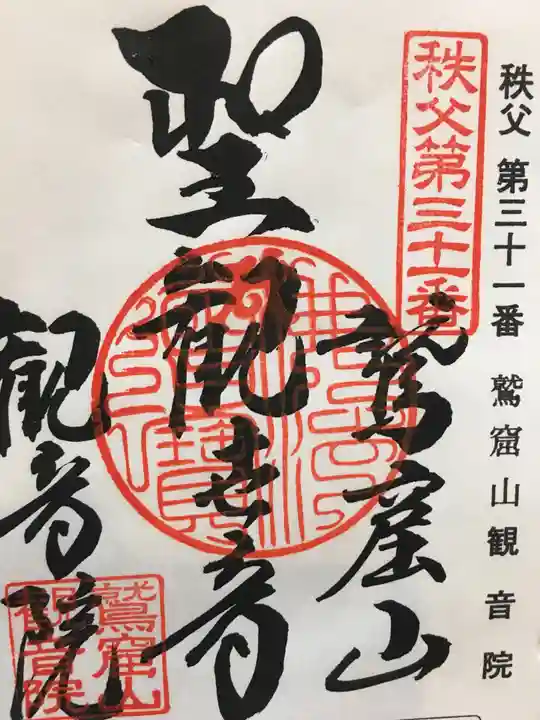 秩父 第三十一番 鷲窟山観音院
秩父第三十一番
鷲窟山
聖観世音
観音院
佛法僧寶
鷲窟山
観音院